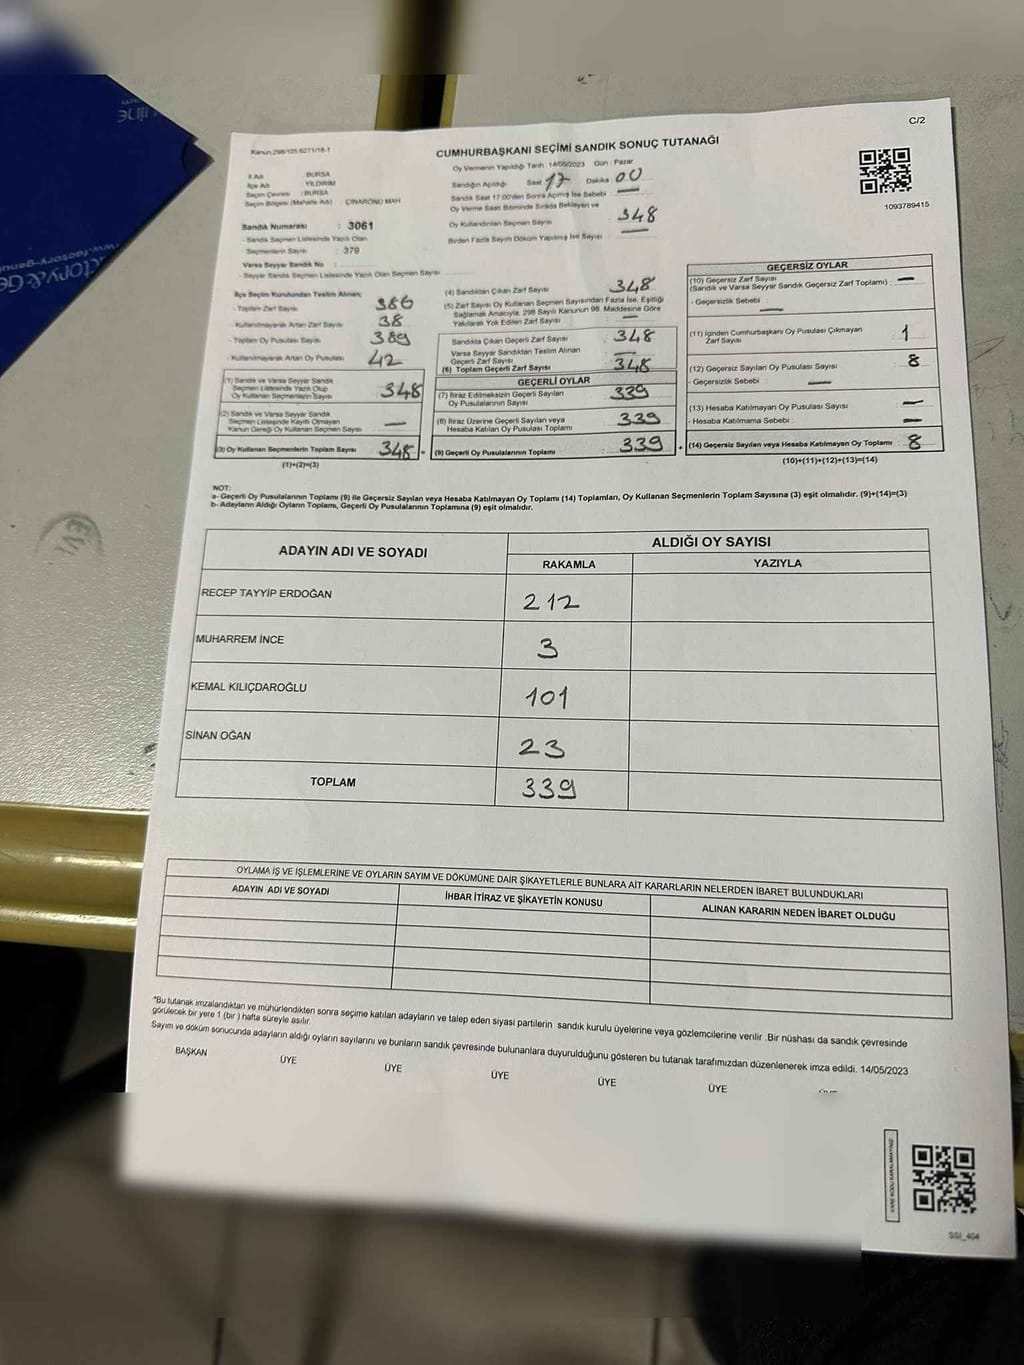 C/2
Kanun:298/105.6271/18-1
CUMHURBAŞKANI SEÇİMİ SANDIK SONUÇ TUTANAĞI
1093789415
İl Adı : BURSA
İlçe Adı : YILDIRIM
Seçim Çevresi : BURSA
Seçim Bölgesi (Mahalle Adı) : ÇINARÖNÜ MAH
Oy Vermenin Yapıldığı Tarih : 14/05/2023 Gün : Pazar
Sandığın Açıldığı Saat 17 Dakika 00
Sandık Saat 17:00'den Sonra Açılmış İse Sebebi : —
Oy Verme Saati Bitiminde Sırada Bekleyen ve
Oy Kullandırılan Seçmen Sayısı : 348
Birden Fazla Sayım Döküm Yapılmış İse Sayısı : —
Sandık Numarası : 3061
- Sandık Seçmen Listesinde Yazılı Olan
Seçmenlerin Sayısı : 379
Varsa Seyyar Sandık No :
- Seyyar Sandık Seçmen Listesinde Yazılı Olan Seçmen Sayısı :
İlçe Seçim Kurulundan Teslim Alınan;
- Toplam Zarf Sayısı : 386
- Kullanılmayarak Artan Zarf Sayısı : 38
- Toplam Oy Pusulası Sayısı : 389
- Kullanılmayarak Artan Oy Pusulası : 42
(1) Sandık ve Varsa Seyyar Sandık
Seçmen Listesinde Yazılı Olup
Oy Kullanan Seçmenlerin Sayısı : 348
(2) Sandık ve Varsa Seyyar Sandık
Seçmen Listesinde Kayıtlı Olmayan
Kanun Gereği Oy Kullanan Seçmen Sayısı : —
(3) Oy Kullanan Seçmenlerin Toplam Sayısı : 348 =
(1)+(2)=(3)
(4) Sandıktan Çıkan Zarf Sayısı : 348
(5) Zarf Sayısı Oy Kullanan Seçmen Sayısından Fazla İse, Eşitliği
Sağlamak Amacıyla, 298 Sayılı Kanunun 98. Maddesine Göre
Yakılarak Yok Edilen Zarf Sayısı : —
Sandıkta Çıkan Geçerli Zarf Sayısı : 348
Varsa Seyyar Sandıktan Teslim Alınan
Geçerli Zarf Sayısı : —
(6) Toplam Geçerli Zarf Sayısı : 348
GEÇERLİ OYLAR
(7) İtiraz Edilmeksizin Geçerli Sayılan
Oy Pusulalarının Sayısı : 339
(8) İtiraz Üzerine Geçerli Sayılan veya
Hesaba Katılan Oy Pusulası Toplamı : 339
(9) Geçerli Oy Pusulalarının Toplamı : 339 +
GEÇERSİZ OYLAR
(10) Geçersiz Zarf Sayısı
(Sandık ve Varsa Seyyar Sandık Geçersiz Zarf Toplamı) : —
- Geçersizlik Sebebi :
—
(11) İçinden Cumhurbaşkanı Oy Pusulası Çıkmayan
Zarf Sayısı : 1
(12) Geçersiz Sayılan Oy Pusulası Sayısı : 8
- Geçersizlik Sebebi : —
(13) Hesaba Katılmayan Oy Pusulası Sayısı : —
- Hesaba Katılmama Sebebi : —
(14) Geçersiz Sayılan veya Hesaba Katılmayan Oy Toplamı : 8
(10)+(11)+(12)+(13)=(14)
NOT:
a- Geçerli Oy Pusulalarının Toplamı (9) ile Geçersiz Sayılan veya Hesaba Katılmayan Oy Toplamı (14) Toplamları, Oy Kullanan Seçmenlerin Toplam Sayısına (3) eşit olmalıdır. (9)+(14)=(3)
b- Adayların Aldığı Oyların Toplamı, Geçerli Oy Pusulalarının Toplamına (9) eşit olmalıdır.
ADAYIN ADI VE SOYADI
ALDIĞI OY SAYISI
RAKAMLA YAZIYLA
RECEP TAYYİP ERDOĞAN 212
MUHARREM İNCE 3
KEMAL KILIÇDAROĞLU 101
SİNAN OĞAN 23
TOPLAM 339
OYLAMA İŞ VE İŞLEMLERİNE VE OYLARIN SAYIM VE DÖKÜMÜNE DAİR ŞİKAYETLERLE BUNLARA AİT KARARLARIN NELERDEN İBARET BULUNDUKLARI
ADAYIN ADI VE SOYADI İHBAR İTİRAZ VE ŞİKAYETİN KONUSU ALINAN KARARIN NEDEN İBARET OLDUĞU
*Bu tutanak imzalandıktan ve mühürlendikten sonra seçime katılan adayların ve talep eden siyasi partilerin sandık kurulu üyelerine veya gözlemcilerine verilir. Bir nüshası da sandık çevresinde
görülecek bir yere 1 (bir ) hafta süreyle asılır.
Sayım ve döküm sonucunda adayların aldığı oyların sayılarını ve bunların sandık çevresinde bulunanlara duyurulduğunu gösteren bu tutanak tarafımızdan düzenlenerek imza edildi. 14/05/2023
BAŞKAN ÜYE ÜYE ÜYE ÜYE ÜYE
SSI_404